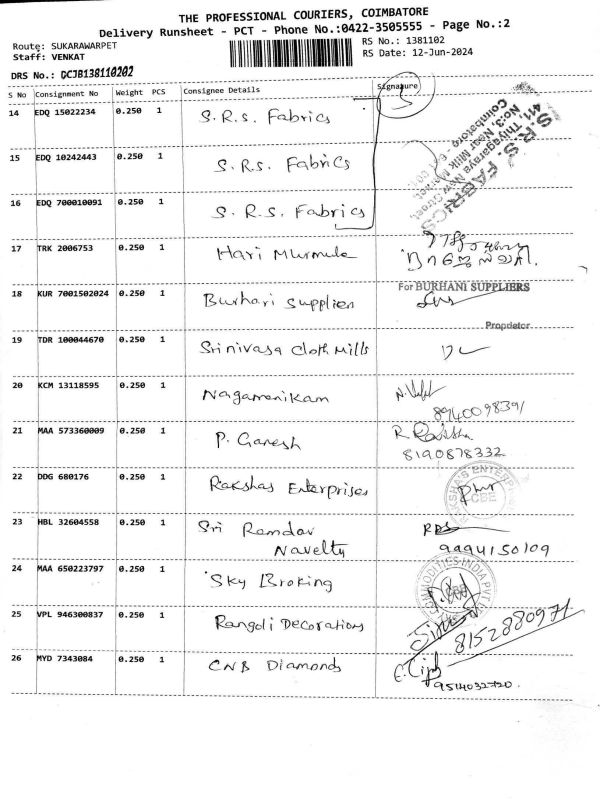 THE PROFESSIONAL COURIERS, COIMBATORE
Delivery Runsheet - PCT - Phone No.:0422-3505555 - Page No.:2
Route: SUKARAWARPET
Staff: VENKAT
RS No.: 1381102
RS Date: 12-Jun-2024
DRS No.: DCJB138110202
S No Consignment No Weight PCS Consignee Details Signature
14 EDQ 15022234 0.250 1 S.R.S. Fabrics
S.R.S. FABRICS
411, Thiyagaraya New Street,
No:3, Near Milk Market,
Coimbatore - 6
15 EDQ 10242443 0.250 1 S.R.S. Fabrics
16 EDQ 700010091 0.250 1 S.R.S. Fabrics
17 TRK 2006753 0.250 1 Hari Murmule
18 KUR 7001502024 0.250 1 Burhari Suppliers
For BURHANI SUPPLIERS
Proprietor
19 TDR 100044670 0.250 1 Srinivasa Cloth Mills
20 KCM 13118595 0.250 1 Nagamanikam
8940098391
21 MAA 573360009 0.250 1 P. Ganesh
8190878332
22 DDG 680176 0.250 1 Rakshas Enterprises
RAKSHA'S ENTERPRISES
CBE
23 HBL 32604558 0.250 1 Sri Ramdav
Navelty
9994150109
24 MAA 650223797 0.250 1 Sky Broking
COMMODITIES INDIA PVT LTD
25 VPL 946300837 0.250 1 Rangoli Decorations
8152880971
26 MYD 7343084 0.250 1 CNB Diamonds
9514032720